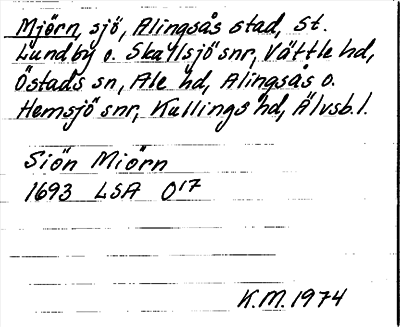 Mjörn, sjö, Alingsås stad, St.
Lundby o. Skallsjö snr, Vättle hd,
Östads sn, Ale hd, Alingsås o.
Hemsjö snr, Kullings hd, Älvsb. l.
Siön Miörn
1693 LSA O17
K.M. 1974